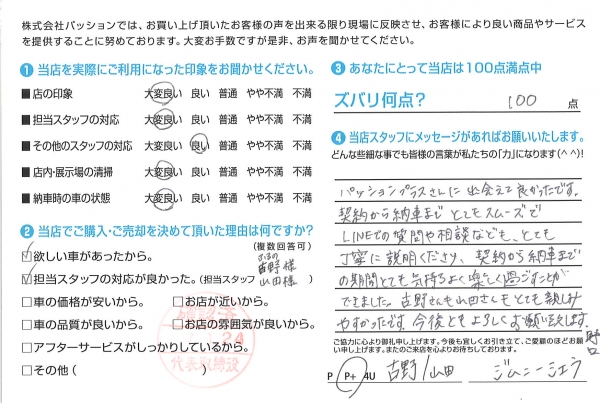 株式会社パッションでは、お買い上げ頂いたお客様の声を出来る限り現場に反映させ、お客様により良い商品やサービス
を提供することに努めております。大変お手数ですが是非、お声を聞かせてください。
❶当店を実際にご利用になった印象をお聞かせください。
■店の印象 大変良い 良い 普通 やや不満 不満
■担当スタッフの対応 大変良い 良い 普通 やや不満 不満
■その他のスタッフの対応 大変良い 良い 普通 やや不満 不満
■店内・展示場の清掃 大変良い 良い 普通 やや不満 不満
■納車時の車の状態 大変良い 良い 普通 やや不満 不満
❷当店でご購入・ご売却を決めて頂いた理由は何ですか?
(複数回答可)
☑欲しい車があったから。
☑担当スタッフの対応が良かった。(担当スタッフ 古野様
山田様
□車の価格が安いから。 □お店が近いから。
□車の品質が良いから。 □お店の雰囲気が良いから。
□アフターサービスがしっかりしているから。
□その他( )
確認済
24
代表取締役
❸あなたにとって当店は100点満点中
ズバリ何点? 100 点
❹当店スタッフにメッセージがあればお願いいたします。
どんな些細な事でも皆様の言葉が私たちの「力」になります(^^)!
パッションプラスさんに出会えて良かったです。
契約から納車まで とてもスムーズで
LINEでの質問や相談なども、とても
丁寧に説明くださり、契約から納車まで
の期間とても気持ちよく楽しく過ごすことが
できました。古野さんも山田さんもとても親しみ
やすかったです。今後ともよろしくお願い致します。
ご協力に心より御礼申し上げます。今後も宜しくお引き立て、ご愛顧のほどお願
い申し上げます。またのご来店を心よりお待ちしております。
P P+ 4U 古野/山田 ジムニーシエラ